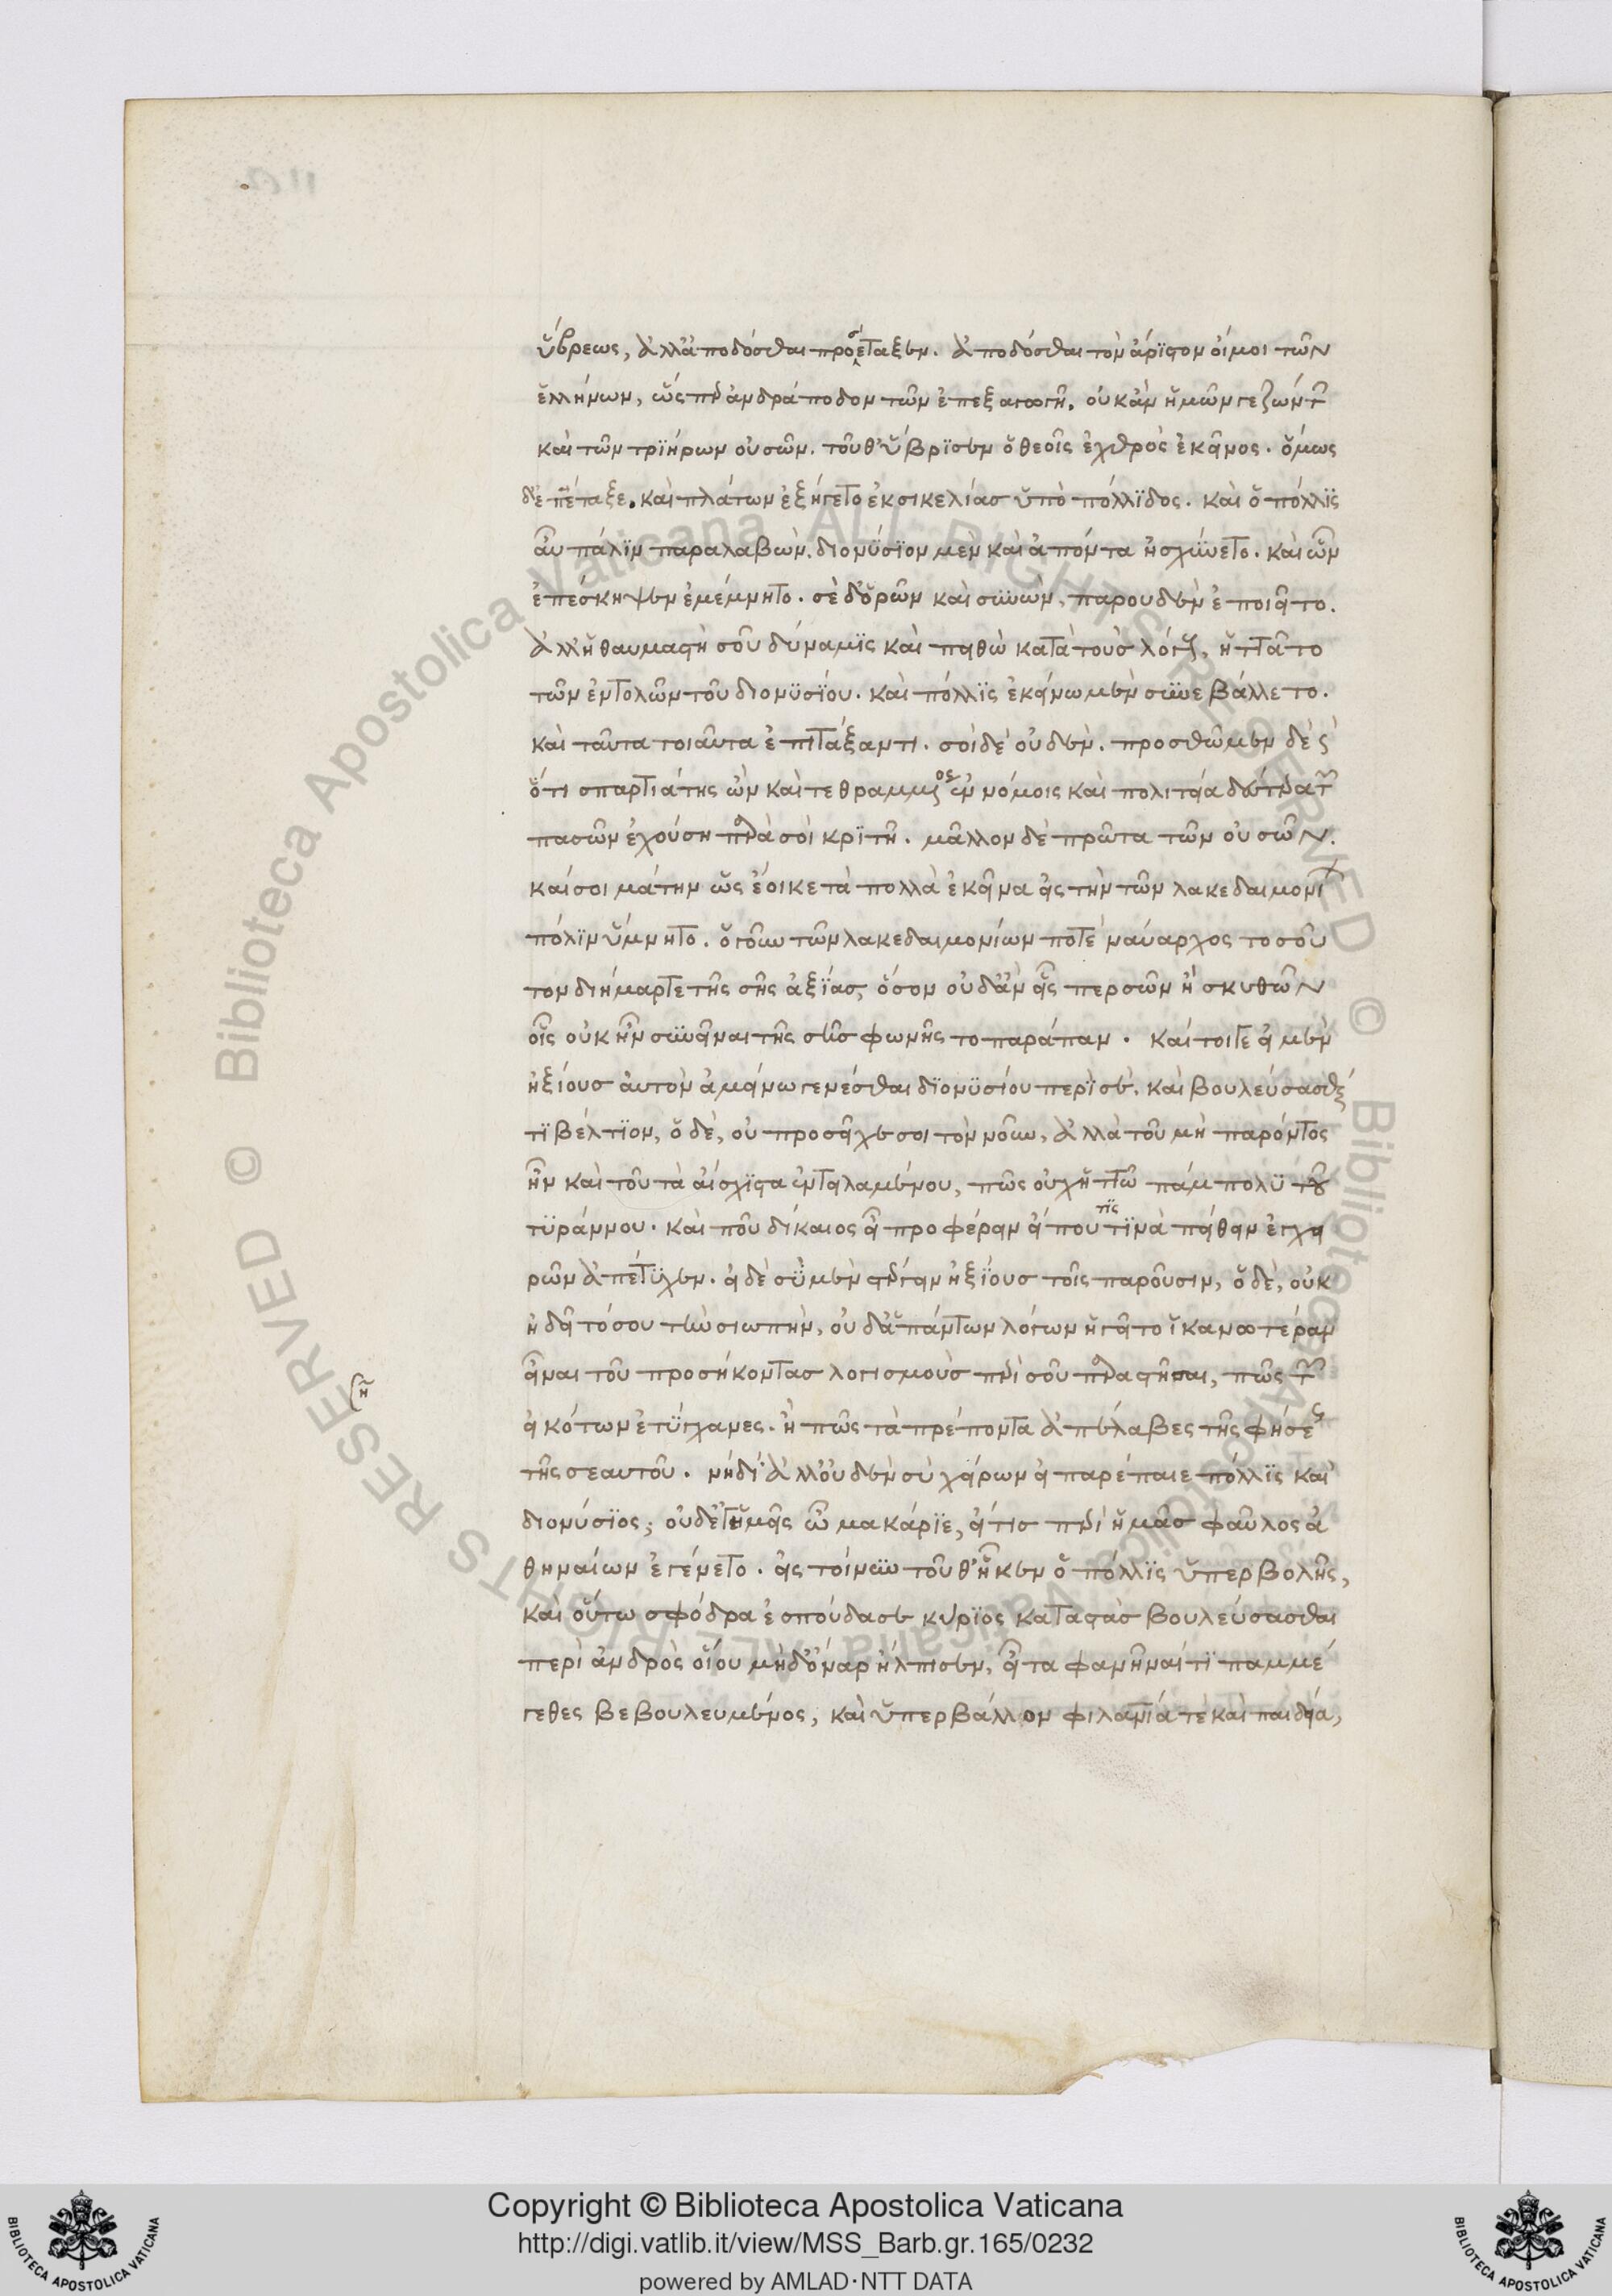 ὕβρεως, ἀλλ' ἀποδόσθαι προσέταξεν. ἀποδόσθαι τὸν ἄριστον οἴμοι τῶν
ἑλλήνων, ὥσπερ ἀνδράποδον τῶν ἐπεξαγωγῇ. οὐκ ἂν ἡμῶν γε ζώντων
καὶ τῶν τριήρων οὐσῶν. τοῦθ' ὕβρισεν ὁ θεοῖς ἐχθρὸς ἐκεῖνος. ὅμως
δ' ἐπέταξε. καὶ πλάτων ἐξήγετο ἐκ σικελίας ὑπὸ πόλλιδος. καὶ ὁ πόλλις
αὖ πάλιν παραλαβών. διονύσιον μὲν καὶ ἀπόντα ἠσχύνετο. καὶ ὧν
ἐπέσκηψεν ἐμέμνητο. σὲ δ' ὁρῶν καὶ συνὼν, παρ' οὐδὲν ἐποιεῖτο.
ἀλλ' ἡ θαυμαστή σου δύναμις καὶ πειθὼ κατὰ τοὺς λόγους, ἡττᾶτο
τῶν ἐντολῶν τοῦ διονυσίου. καὶ πόλλις ἐκείνω μὲν συνεβάλλετο.
καὶ ταῦτα τοιαῦτα ἐπιτάξαντι. σοὶ δὲ οὐδέν. προσθῶμεν δὲ καὶ
ὅτι σπαρτιάτης ὢν καὶ τεθραμμένος ἐν νόμοις καὶ πολιτεία δευτερεῖα τῶν
πασῶν ἐχούση παρὰ σοὶ κριτῇ. μᾶλλον δὲ πρῶτα τῶν οὐσῶν.
καί σοι μάτην ὡς ἔοικε τὰ πολλὰ ἐκεῖνα εἰς τὴν τῶν λακεδαιμονίων
πόλιν ὕμνητο. ὁ γοῦν τῶν λακεδαιμονίων ποτὲ ναύαρχος τοσοῦ
τον διήμαρτε τῆς σῆς ἀξίας, ὅσον οὐδ' ἂν εἷς περσῶν ἢ σκυθῶν
οἷς οὐκ ἦν συνεῖναι τῆς σῆς φωνῆς τοπαράπαν. καίτοι γε εἰ μὲν
ἠξίους αὐτὸν ἀμείνω γενέσθαι διονυσίου περὶ σέ. καὶ βουλεύσασθαί
τι βέλτιον, ὁ δὲ, οὐ προσεῖχέ σοι τὸν νοῦν, ἀλλὰ τοῦ μὴ παρόντος
ἦν καὶ τοῦ τὰ αἴσχιστα ἐντειλαμένου, πῶς οὐχ ἥττω πάμπολυ τοῦ
τυράννου. καὶ ποῦ δίκαιος εἶ προφέρειν εἴ πού τίς τινὰ πείθειν ἐγχει
ρῶν ἀπέτυχεν. εἰ δὲ σὺ μὲν στέγειν ἠξίους τοῖς παροῦσιν, ὁ δὲ, οὐκ
ἠδεῖτό σου τὴν σιωπὴν, οὐδ' ἁπάντων λόγων ἡγεῖτο ἱκανωτέραν
εἶναι τοῦ προσήκοντας λογισμοὺς περὶ σοῦ παραστῆσαι, πῶς τῶν
εἰκότων ἐτύγχανες. ἢ πῶς τὰ πρέποντα ἀπέλαβες τῆς φύσεως
τῆς σεαυτοῦ. νὴ δί' ἀλλ' οὐδὲν σὺ χείρων εἰ παρέπαιε πόλλις καὶ
διονύσιος; οὐδέ γ' ἡμεῖς ὦ μακάριε, εἴ τις περὶ ἡμᾶς φαῦλος ἀ
θηναίων ἐγένετο. εἰς τοίνυν τοῦθ' ἧκεν ὁ πόλλις ὑπερβολῆς,
καὶ οὕτω σφόδρα ἐσπούδασε κύριος καταστὰς βουλεύσασθαι
περὶ ἀνδρὸς οἵου μηδ' ὄναρ ἤλπισεν, εἶτα φανῆναί τι παμμέ
γεθες βεβουλευμένος, καὶ ὑπερβάλλον φιλανία τὲ καὶ παιδεία,
Copyright © Biblioteca Apostolica Vaticana
http://digi.vatlib.it/view/MSS_Barb.gr.165/0232
powered by AMLAD·NTT DATA